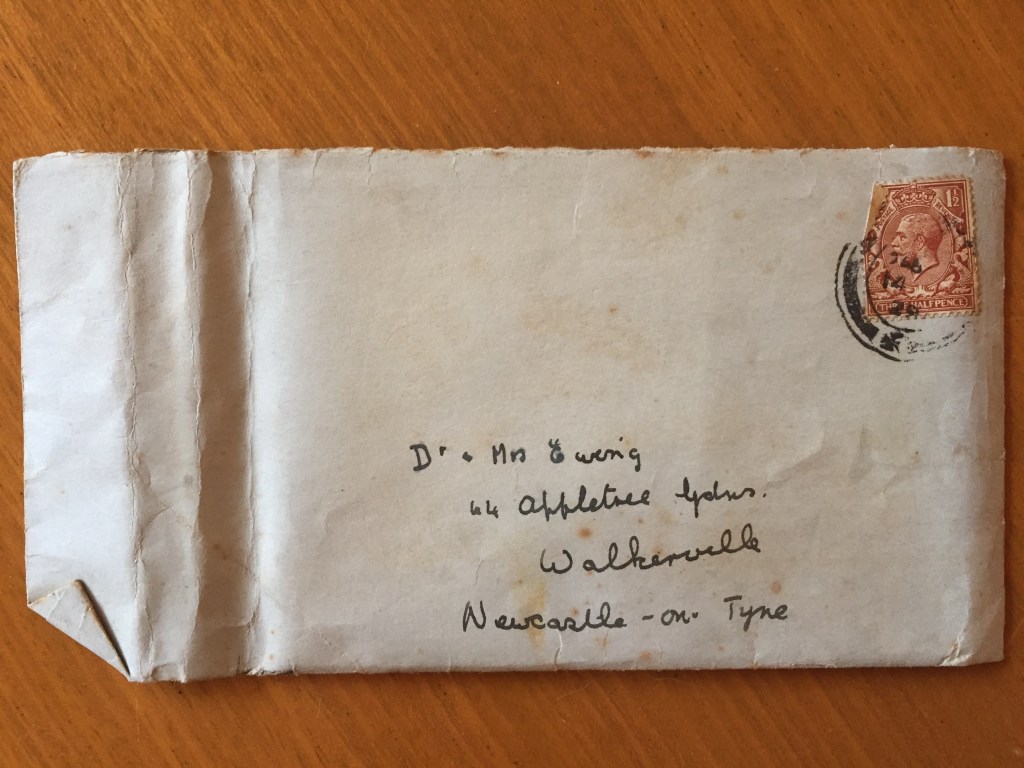 1½
THREE HALFPENCE
14
Dr & Mrs Ewing
44 Appletree Gdns.
Walkerville
Newcastle-on-Tyne